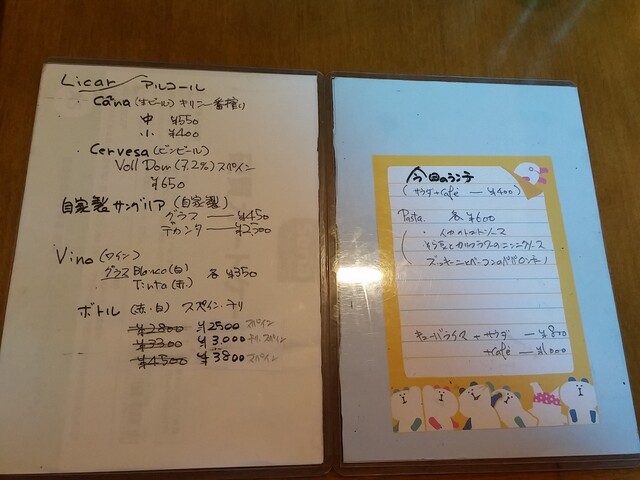 Licar アルコール
・Caña (生ビール) キリン一番搾り
中 ¥550
小 ¥400
・Cervesa (ビンビール)
Voll Dow (7.2%) スペイン
¥650
自家製サングリア (自家製)
グラス — ¥450
デカンタ — ¥2,500
Vino (ワイン)
グラス Blanco (白) 各 ¥350
Tinto (赤)
ボトル (赤・白) スペイン・チリ
¥2800 ¥2500 スペイン
¥3300 ¥3,000 チリ、スペイン
¥4500 ¥3800 スペイン
今日のランチ
(サラダ+Café — ¥400)
Pasta. 各 ¥600
・イカのトマトソース
そら豆とカリフラワーのニンニクソース
ズッキーニとベーコンのペペロンチーノ
キューバライス + サラダ — ¥800
+Café — ¥1,000